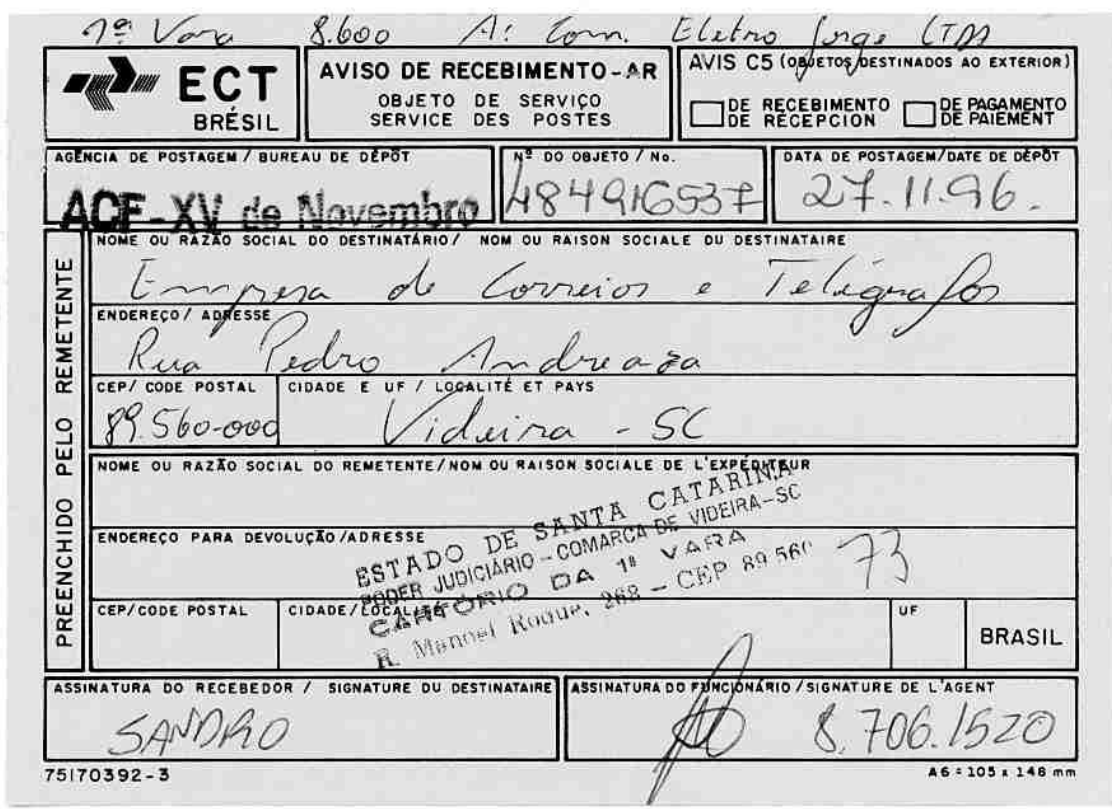 1ª Vara 8.600 A: Com. Eletro Jorge LTDA
ECT
BRÉSIL
AVISO DE RECEBIMENTO-AR
OBJETO DE SERVIÇO
SERVICE DES POSTES
AVIS C5 (OBJETOS DESTINADOS AO EXTERIOR)
DE RECEBIMENTO
DE RÉCEPCION
DE PAGAMENTO
DE PAIEMENT
AGÊNCIA DE POSTAGEM / BUREAU DE DÉPÔT
ACF-XV de Novembro
Nº DO OBJETO / No.
484916537
DATA DE POSTAGEM/DATE DE DÉPÔT
27.11.96.
PREENCHIDO PELO REMETENTE
NOME OU RAZÃO SOCIAL DO DESTINATÁRIO / NOM OU RAISON SOCIALE DU DESTINATAIRE
Empresa de Correios e Telégrafos
ENDEREÇO / ADRESSE
Rua Pedro Andreaza
CEP/ CODE POSTAL
89.560-000
CIDADE E UF / LOCALITÉ ET PAYS
Videira - SC
NOME OU RAZÃO SOCIAL DO REMETENTE/NOM OU RAISON SOCIALE DE L'EXPÉDITEUR
ENDEREÇO PARA DEVOLUÇÃO/ADRESSE
ESTADO DE SANTA CATARINA
PODER JUDICIÁRIO - COMARCA DE VIDEIRA-SC
CARTÓRIO DA 1ª VARA
R. Manoel Roque, 268 - CEP 89 560
73
CEP/CODE POSTAL
CIDADE/LOCALITÉ
UF
BRASIL
ASSINATURA DO RECEBEDOR / SIGNATURE DU DESTINATAIRE
SANDRO
ASSINATURA DO FUNCIONÁRIO /SIGNATURE DE L'AGENT
8.706.1520
75170392-3
A6 = 105 x 148 mm